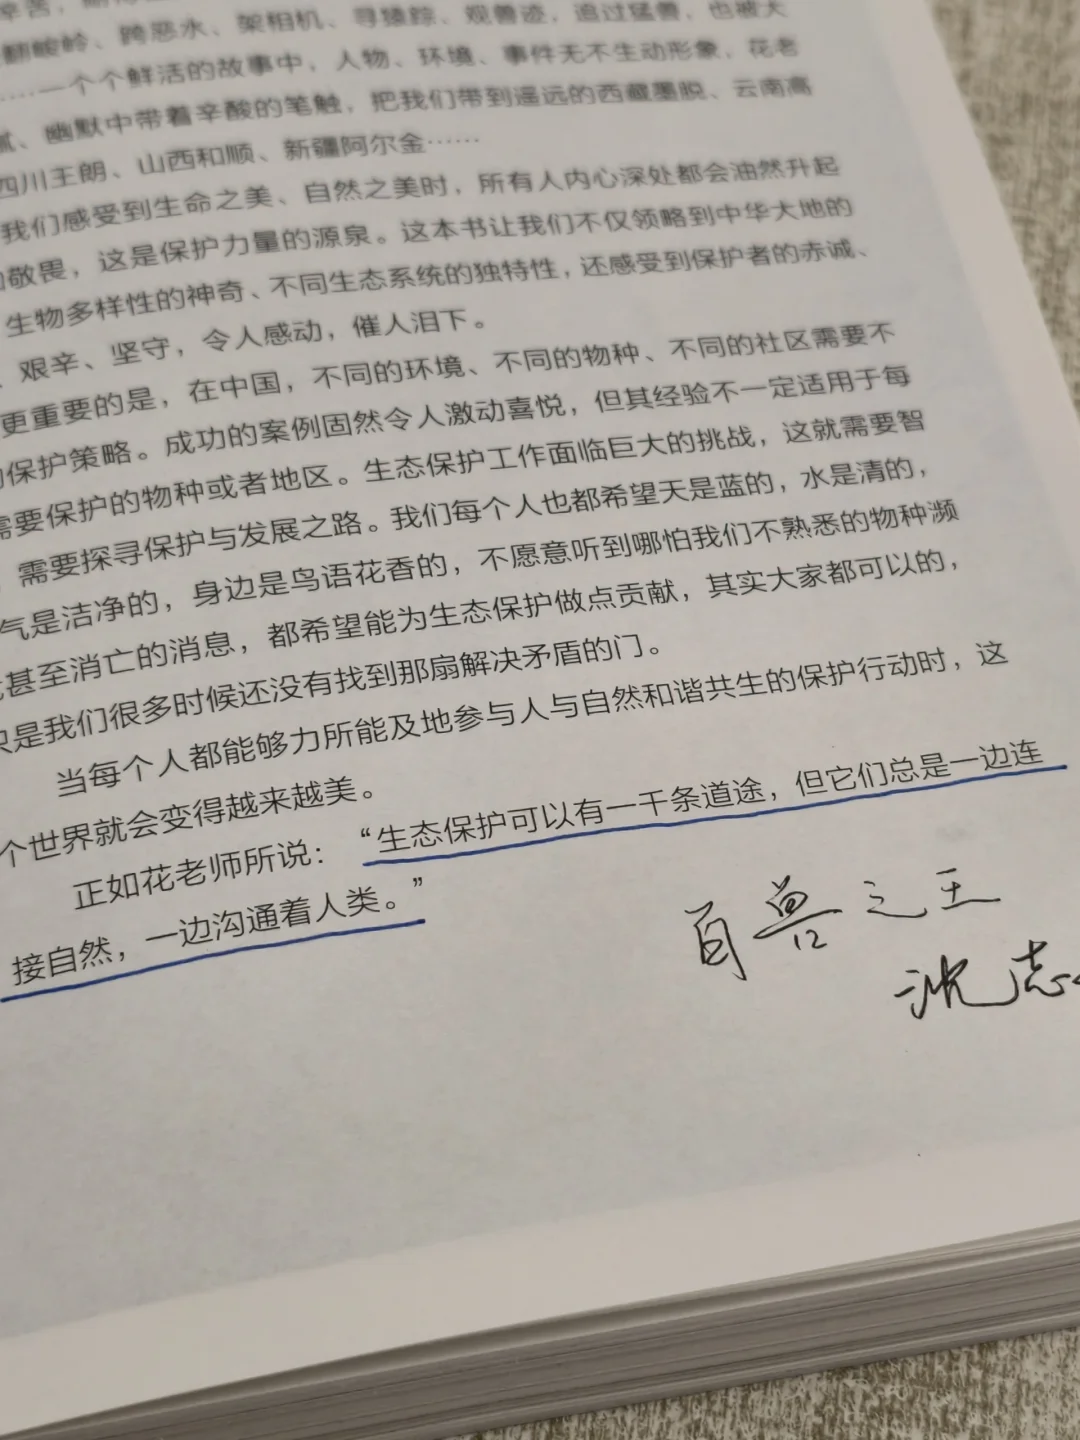 翻峻岭、跨恶水、架相机、寻猿踪、观兽迹，追过猛兽，也被大
……一个个鲜活的故事中，人物、环境、事件无不生动形象，花老
、幽默中带着辛酸的笔触，把我们带到遥远的西藏墨脱、云南高
四川王朗、山西和顺、新疆阿尔金……
我们感受到生命之美、自然之美时，所有人内心深处都会油然升起
敬畏，这是保护力量的源泉。这本书让我们不仅领略到中华大地的
生物多样性的神奇、不同生态系统的独特性，还感受到保护者的赤诚、
艰辛、坚守，令人感动，催人泪下。
更重要的是，在中国，不同的环境、不同的物种、不同的社区需要不
的保护策略。成功的案例固然令人激动喜悦，但其经验不一定适用于每
需要保护的物种或者地区。生态保护工作面临巨大的挑战，这就需要智
需要探寻保护与发展之路。我们每个人也都希望天是蓝的，水是清的，
气是洁净的，身边是鸟语花香的，不愿意听到哪怕我们不熟悉的物种濒
甚至消亡的消息，都希望能为生态保护做点贡献，其实大家都可以的，
只是我们很多时候还没有找到那扇解决矛盾的门。
当每个人都能够力所能及地参与人与自然和谐共生的保护行动时，这
个世界就会变得越来越美。
正如花老师所说：“生态保护可以有一千条道途，但它们总是一边连
接自然，一边沟通着人类。”
百兽之王
沈志